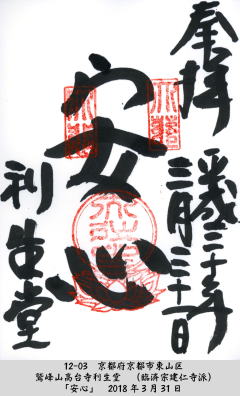 奉拝
平成三十年
三月三十一日
安心
利生堂
12-03 京都府京都市東山区
鷲峰山高台寺利生堂 (臨済宗建仁寺派)
「安心」 2018年3月31日